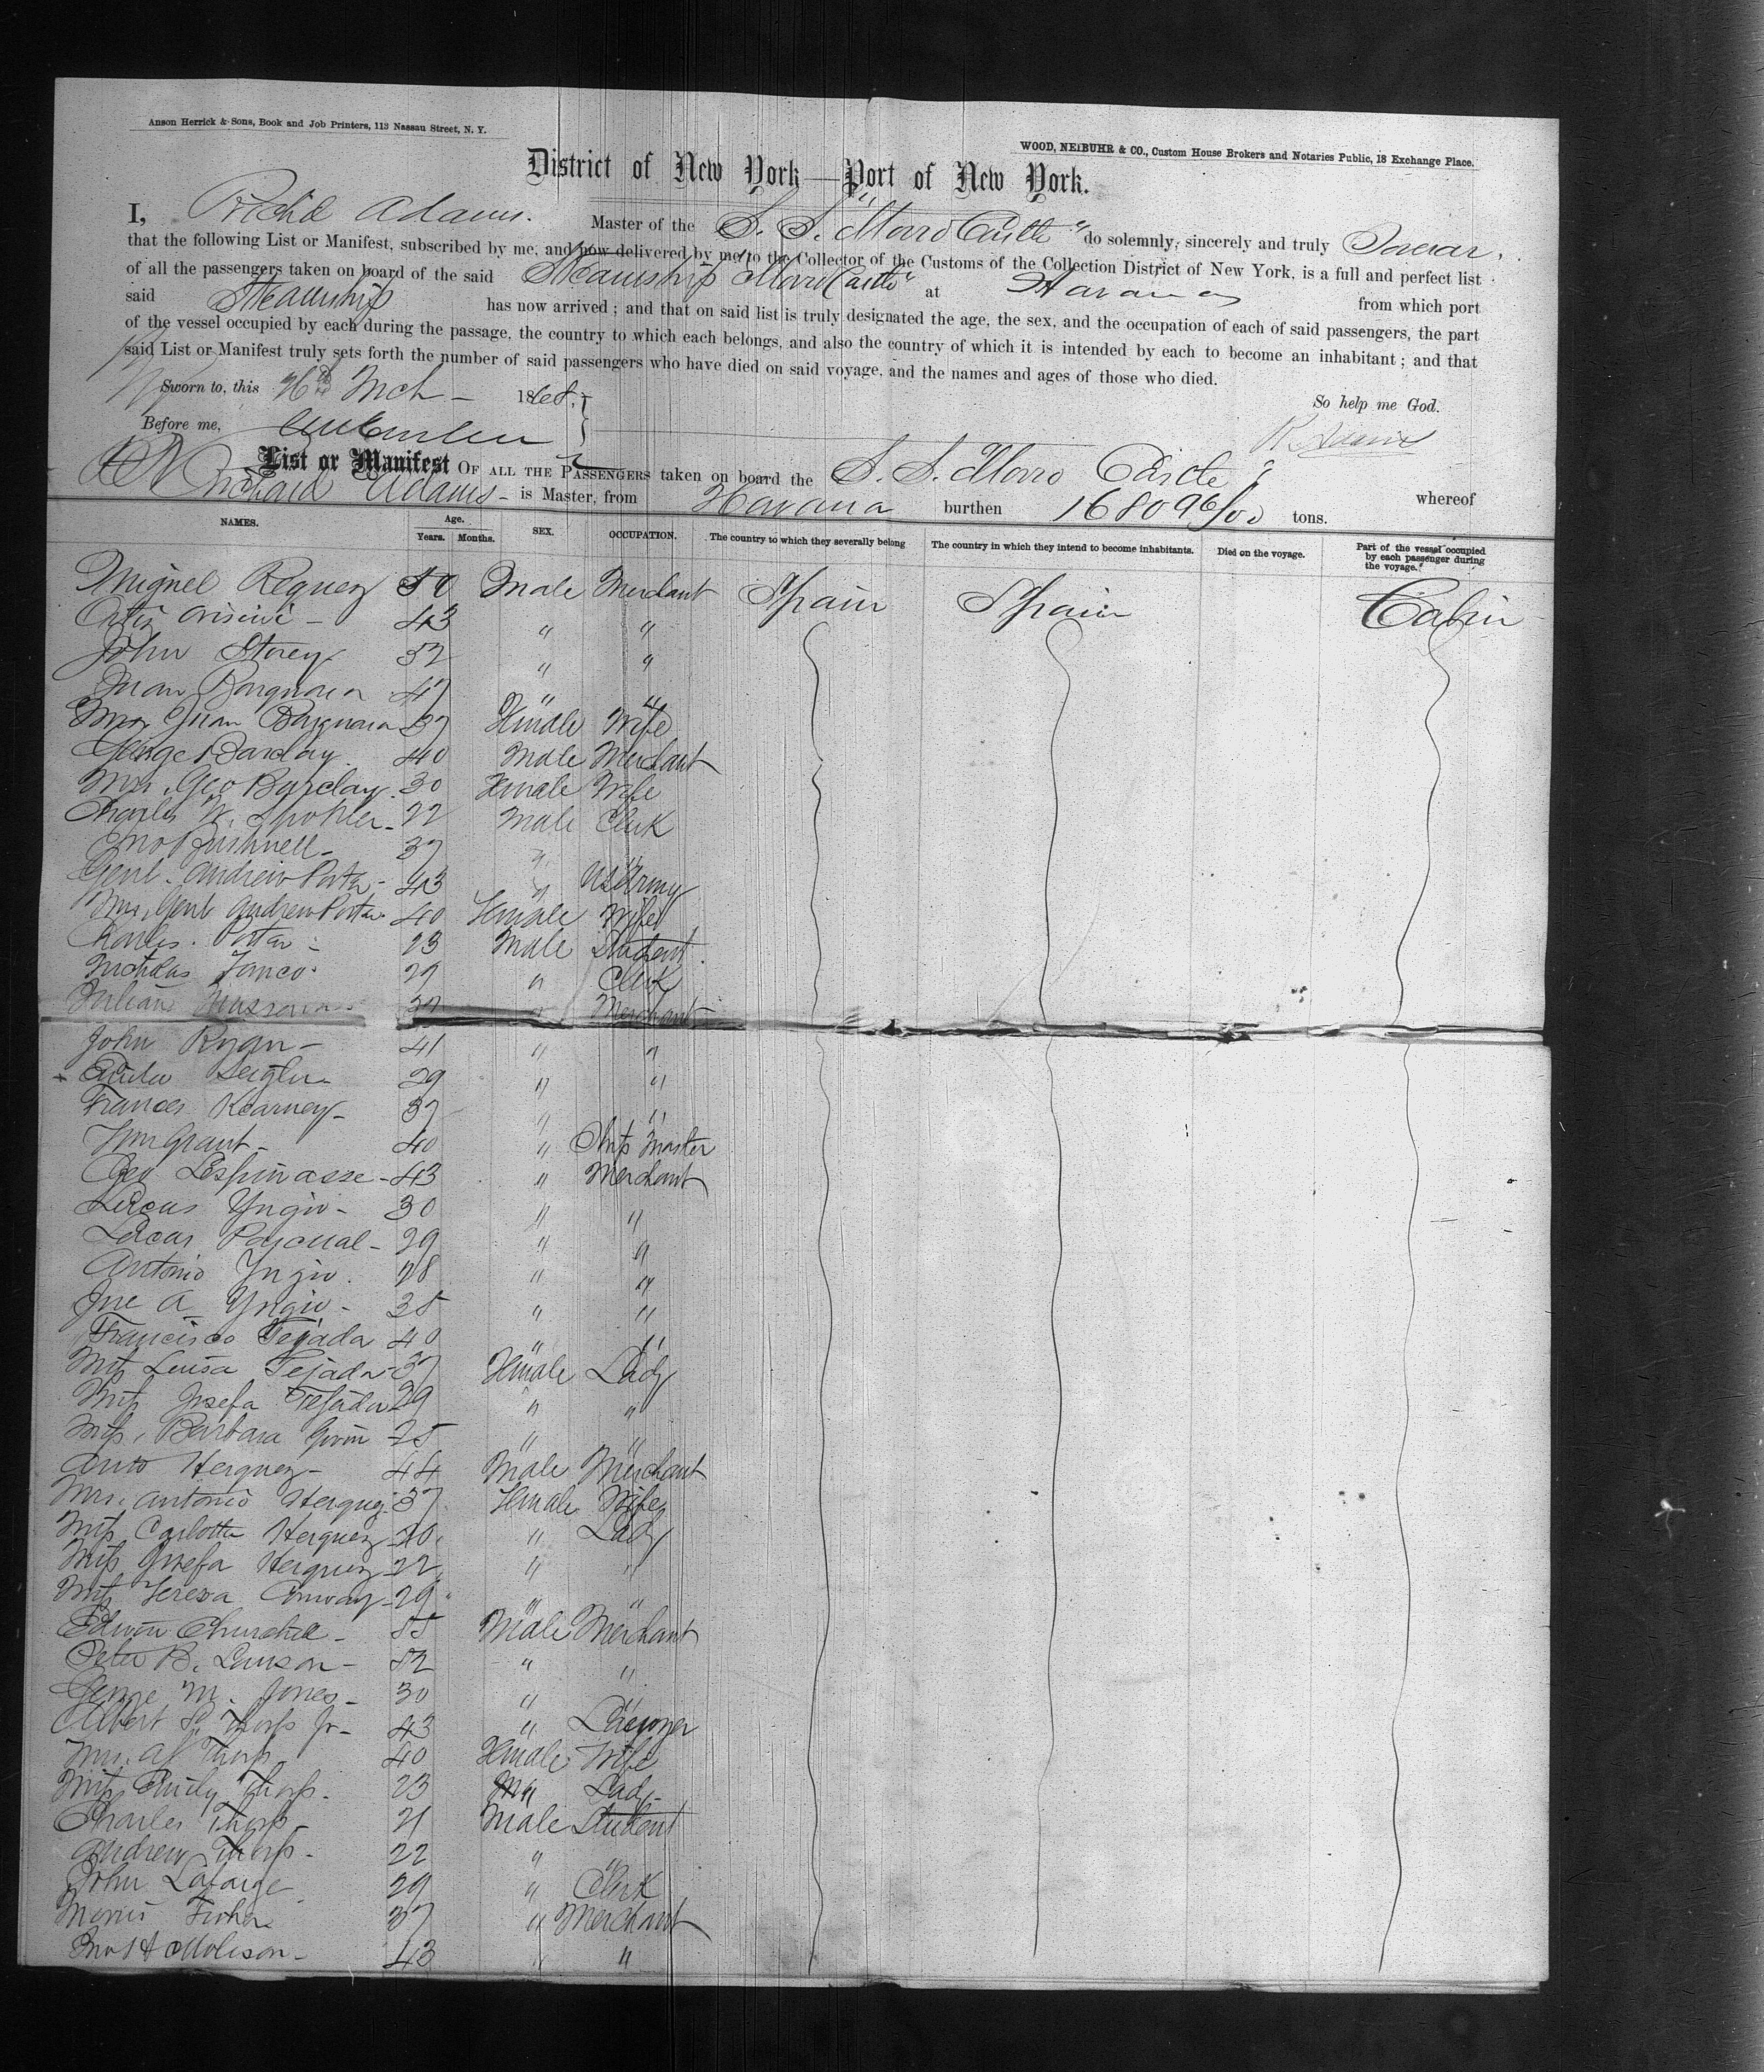 Anson Herrick & Sons, Book and Job Printers, 113 Nassau Street, N. Y.
WOOD, NEIBUHR & CO., Custom House Brokers and Notaries Public, 18 Exchange Place.
District of New York—Port of New York.
I, Richd Adams. Master of the S. S. "Morro Castle" do solemnly, sincerely and truly Swear.
that the following List or Manifest, subscribed by me, and now delivered by me to the Collector of the Customs of the Collection District of New York, is a full and perfect list
of all the passengers taken on board of the said Steamship "Morro Castle" at Havana from which port
said Steamship has now arrived; and that on said list is truly designated the age, the sex, and the occupation of each of said passengers, the part
of the vessel occupied by each during the passage, the country to which each belongs, and also the country of which it is intended by each to become an inhabitant; and that
said List or Manifest truly sets forth the number of said passengers who have died on said voyage, and the names and ages of those who died.
Sworn to, this Mch 1868. So help me God.
Before me, R Adams
List or Manifest OF ALL THE PASSENGERS taken on board the S. S. Morro Castle whereof
Richard Adams - is Master, from Havana burthen 1680 96/00 tons.
NAMES. Age. Years. Months. SEX. OCCUPATION. The country to which they severally belong The country in which they intend to become inhabitants. Died on the voyage. Part of the vessel occupied by each passenger during the voyage.
Miguel 50 Male Merchant Spain Spain Cabin
43 " "
John Storey 52 " "
Juan 47 " "
Mrs Juan 37 Female Wife
George Barclay 40 Male Merchant
Mrs. Geo Barclay. 30 Female Wife
Charles W. 22 Male Clerk
Jno Bushnell - 37 " "
Genl. Andrew Porter - 43 " US Army
Mrs. Genl Andrew Porter 40 Female Wife
Charles Porter - 23 Male Student
Nicholas 29 " Clerk
37 " Merchant
John Ryan - 41 " "
29 " "
Frances Kearney - 37 " "
Wm Grant - 40 " Ship Master
Geo Lespinasse - 43 " Merchant
Lucas Yngio - 30 " "
Lucas Pascual - 29 " "
Antonio Yngio. 28 " "
Jne A Yngio - 35 " "
Francisco Tejada 40 " "
Miss Luisa Tejada - 37 Female Lady
Miss Josefa Tejada 29 " "
Miss. Barbara 25 " "
Anto Herquez - 44 Male Merchant
Mrs. Antonio Herquez 37 Female Wife
Miss Carlotta Herquez 20 " Lady
Miss Josefa Herquez 22 " "
Miss Teresa Conway - 29 " "
Edwin Churchill - 55 Male Merchant
Peter B. Lawson - 52 " "
George M. Jones - 30 " "
Albert S. Thorp Jr - 43 " Lawyer
Mrs. Thorp 40 Female Wife
Miss Emily Thorp. 23 " Lady -
Charles Thorp - 21 Male Student
Andrew Thorp - 22 " "
John Lafarge 29 " Clerk
Morris Fisher 37 " Merchant
Jno H Molison - 43 " "